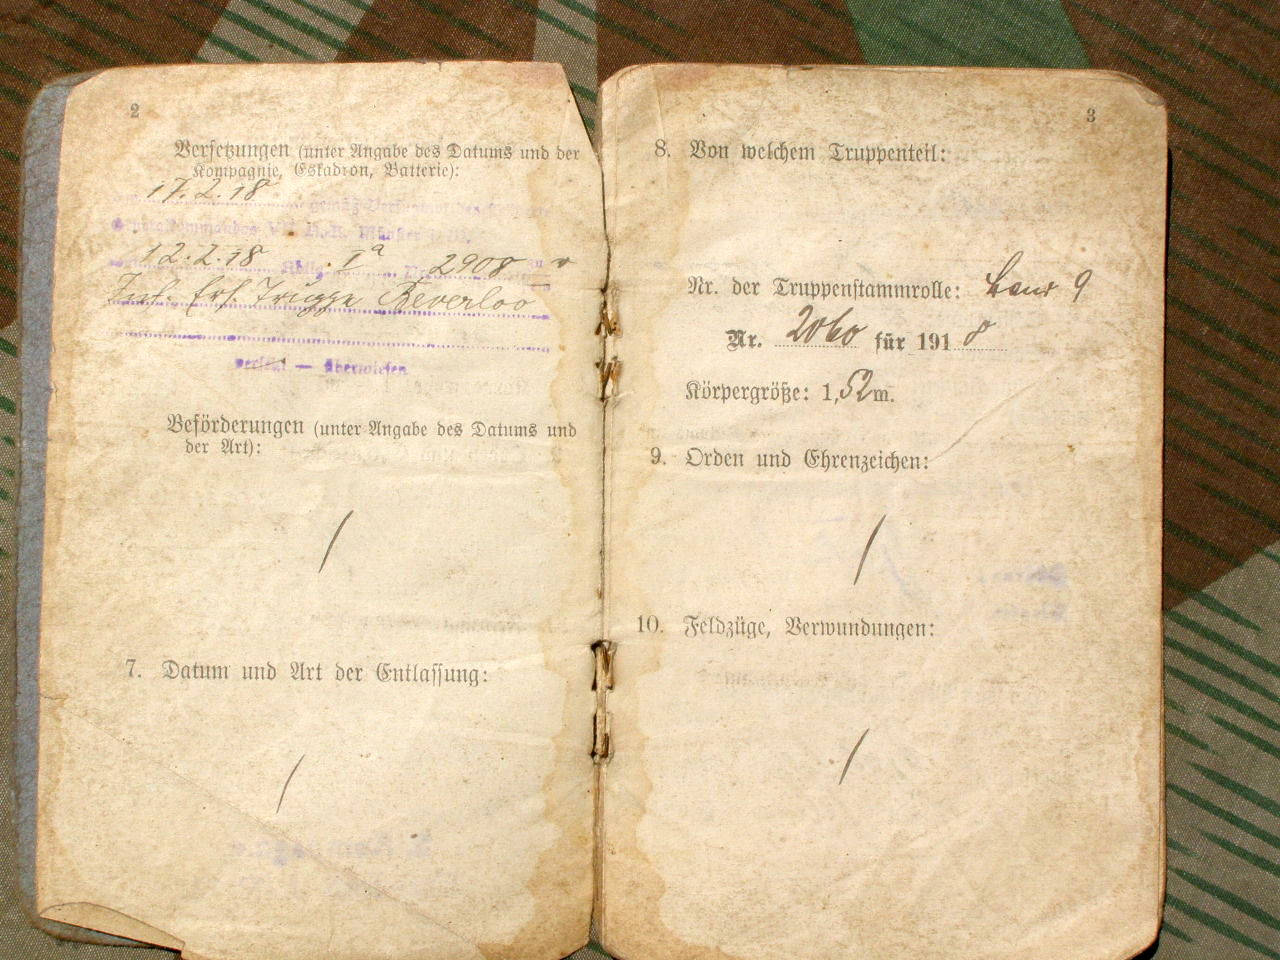 2
Versetzungen (unter Angabe des Datums und der
Kompagnie, Eskadron, Batterie):
17.2.18 gemäß
VII. A. K. Münster
12.2.18 Ia 2908
Inf. Ers. Truppe Beverloo
versetzt — überwiesen
Beförderungen (unter Angabe des Datums und
der Art):
/
7. Datum und Art der Entlassung:
/
3
8. Von welchem Truppenteil:
Nr. der Truppenstammrolle: 9
Nr. 2060 für 1918
Körpergröße: 1,52m.
9. Orden und Ehrenzeichen:
/
10. Feldzüge, Verwundungen:
/